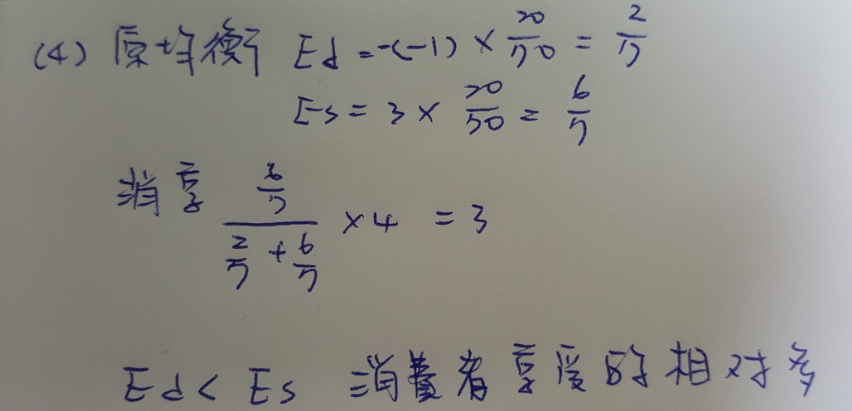 (4) 原均衡 Ed = -(-1) × 20/50 = 2/5
Es = 3 × 20/50 = 6/5
消享 (6/5)/(2/5 + 6/5) × 4 = 3
Ed < Es 消費者享受的相對多